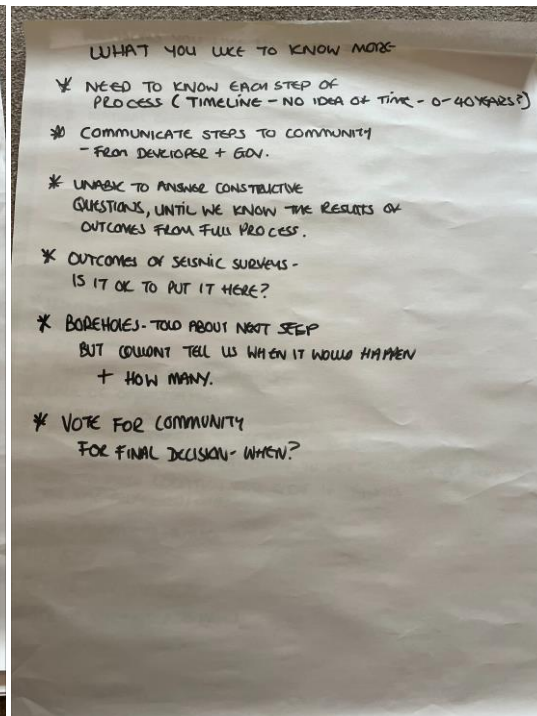 WHAT YOU LIKE TO KNOW MORE
* NEED TO KNOW EACH STEP OF
PROCESS (TIMELINE - NO IDEA OF TIME - 0-40YEARS?)
* COMMUNICATE STEPS TO COMMUNITY
- FROM DEVELOPER + GOV.
* UNABLE TO ANSWER CONSTRUCTIVE
QUESTIONS, UNTIL WE KNOW THE RESULTS OR
OUTCOMES FROM FULL PROCESS.
* OUTCOMES OF SEISMIC SURVEYS -
IS IT OK TO PUT IT HERE?
* BOREHOLES - TOLD ABOUT NEXT STEP
BUT COULDN'T TELL US WHEN IT WOULD HAPPEN
+ HOW MANY.
* VOTE FOR COMMUNITY
FOR FINAL DECISION - WHEN?